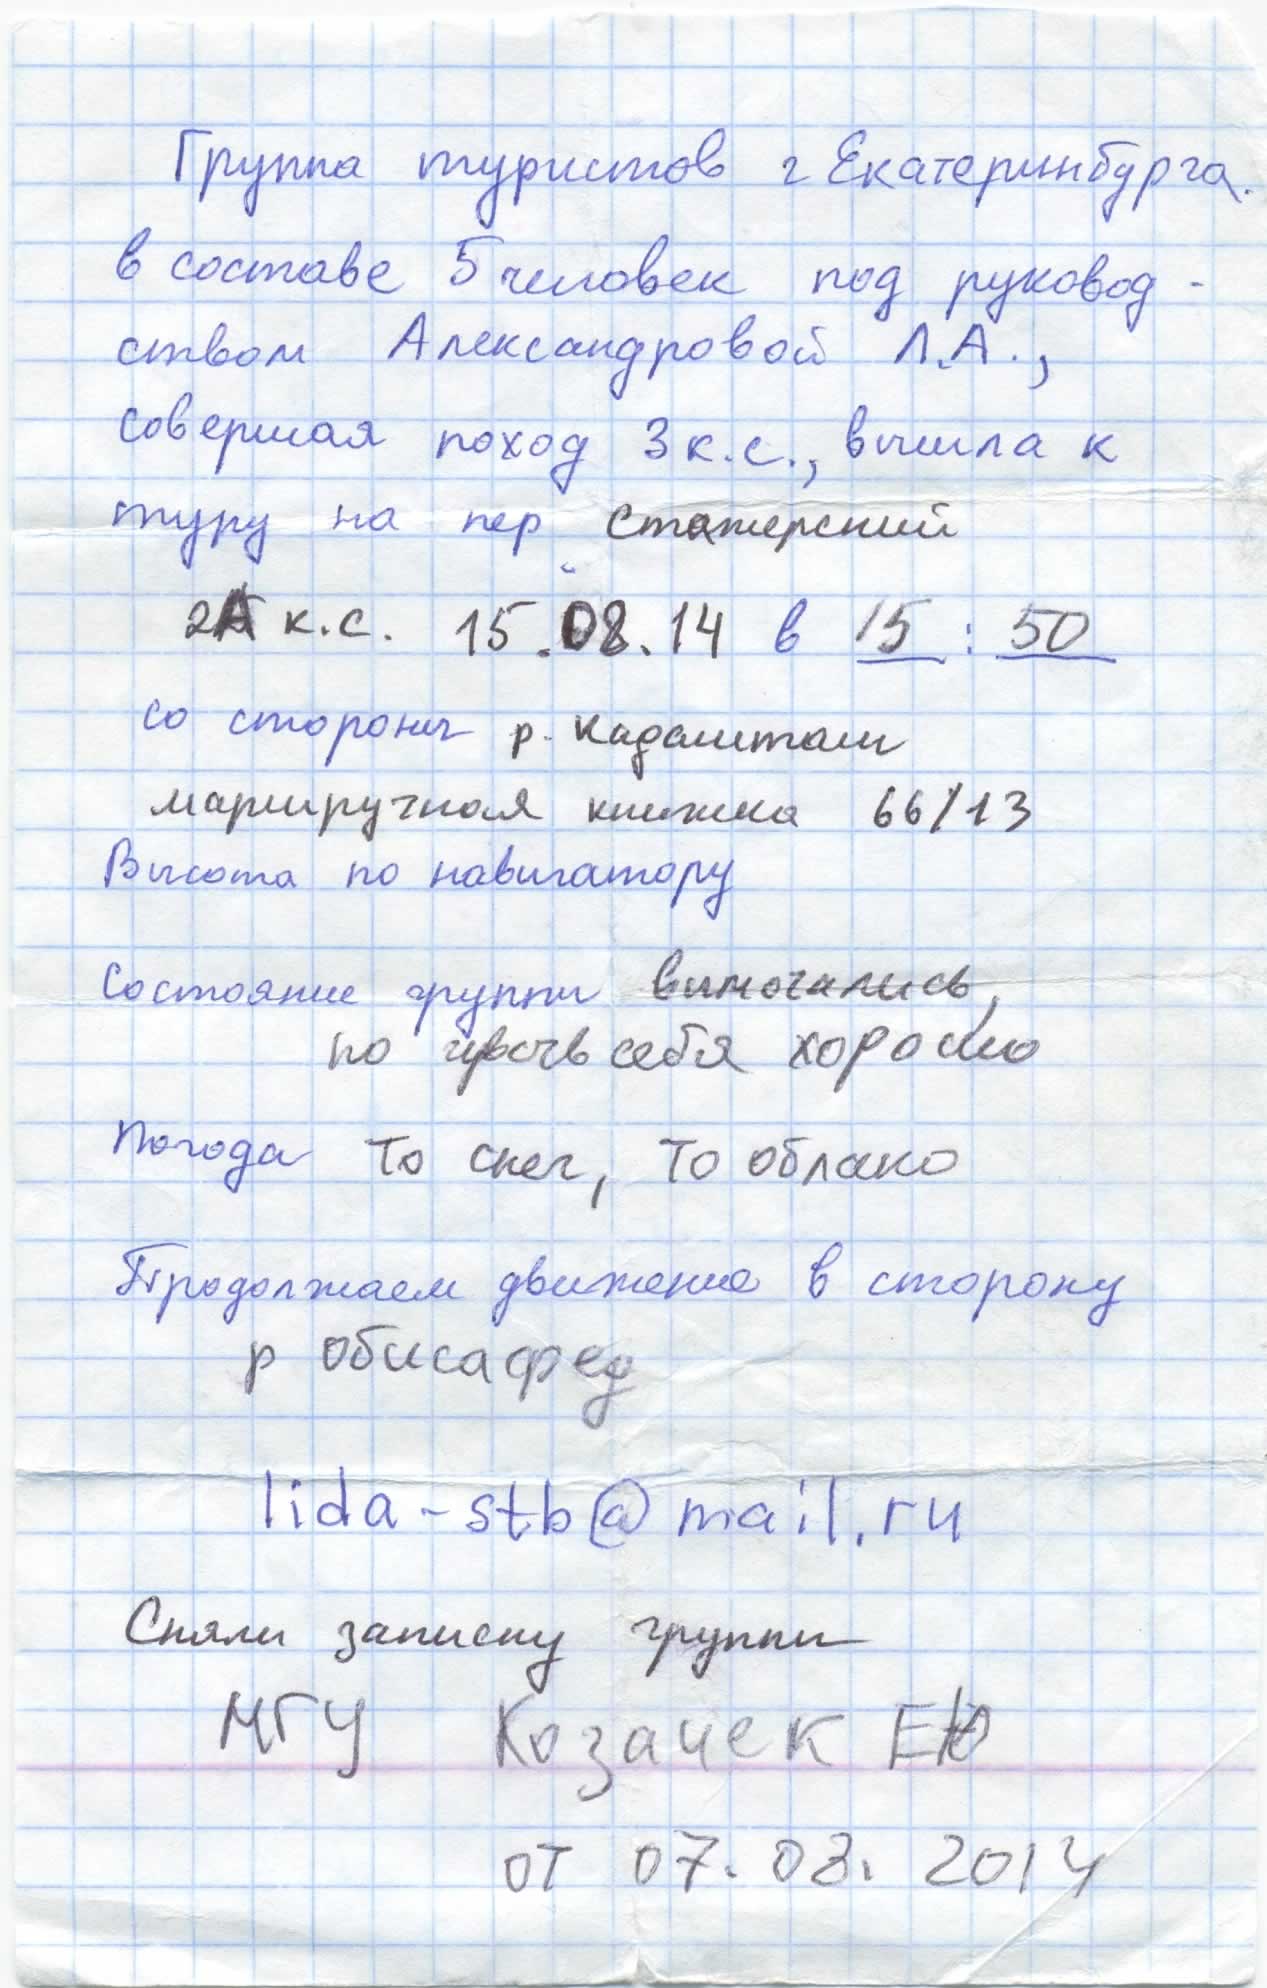 Группа туристов г Екатеринбурга.
в составе 5 человек под руковод-
ством Александровой Л.А.,
совершая поход 3 к.с., вышла к
туру на пер Стажерский
2А к.с. 15.08.14 в 15:50
со стороны р. Кадамташ
маршрутная книжка 66/13
Высота по навигатору
Состояние группы вымотались,
но чувств себя хорошо
Погода то снег, то облако
Продолжаем движение в сторону
р обисафед
lida-stb@mail.ru
Сняли записку группы
МГУ Козачек ЕЮ
от 07.08.2014